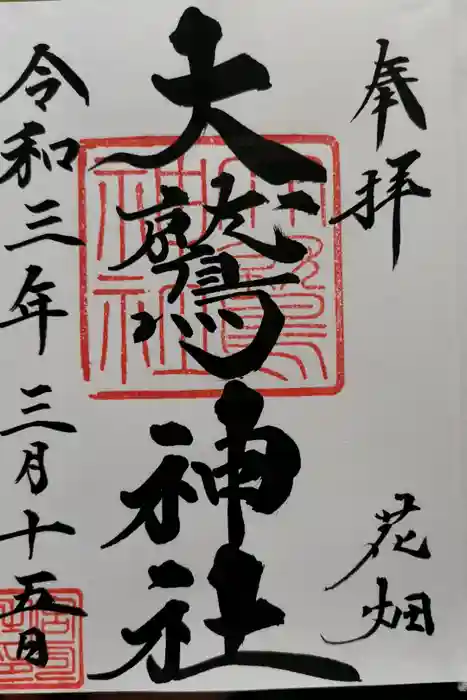 奉拝
花畑
大鷲神社
令和三年三月十五日